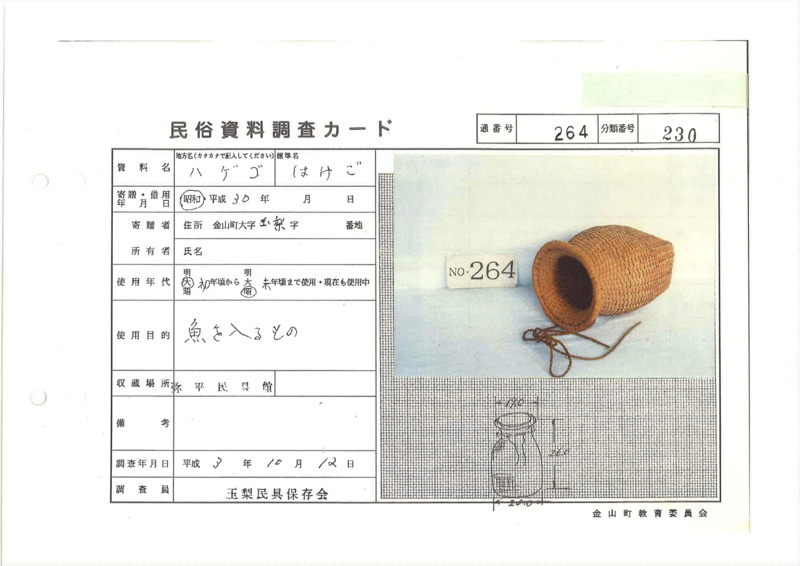 民俗資料調査カード
通番号 264 分類番号 230
資料名 地方名(カタカナで記入してください) ハゲゴ 標準名 はけご
寄贈・借用年月日 昭和・平成 30年 月 日
寄贈者 住所 金山町大字 玉梨 字 番地
所有者 氏名
使用年代 明大昭 初年頃から 明大昭 末年頃まで使用・現在も使用中
使用目的 魚を入るもの
収蔵場所 弥平民具館
備考
調査年月日 平成 3年 10月 12日
調査員 玉梨民具保存会
NO-264
17.0
26.0
金山町教育委員会